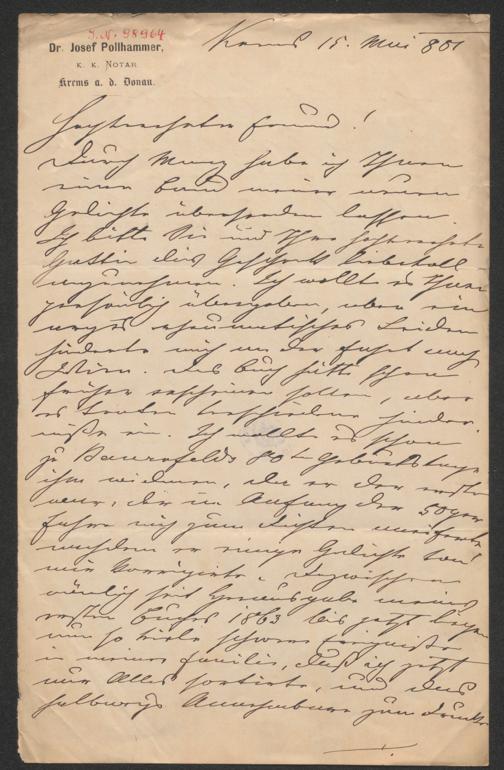 J.N. 98964
Dr. Josef Pollhammer,
K. K. NOTAR
Krems a. d. Donau.
Krems 15. Mai 881
Hochverehrter Freund!
Durch Manz habe ich Ihnen
einen Band meiner neuen
Gedichte übersenden lassen.
Ich bitte Sie und Ihre hochverehrte
Gattin das Geschenk liebevoll
anzunehmen. Ich wollt es Ihnen
persönlich übergeben, aber ein
arges rheumatisches Leiden
hinderte mich an der Fahrt nach
Wien. Das Buch hätte schon
früher erscheinen sollen, aber
es traten verschiedene Hinder-
niße ein. Ich wollte es schon
zu Bauernfelds 80ten Geburtstage
ihm widmen, da er der erste
war, der im Anfang der 50ger
Jahre mich zum Dichten
nachdem er einige Gedichte von
mir korrigirte. Inzwischen
nämlich seit Herausgabe meines
ersten Buches 1863 bis jetzt liegen
nun so viele schwere Ereigniße
in meiner Familie, daß ich jetzt
nur Alles sortirte, und das
halbwegs Annehmbare zum Drucke